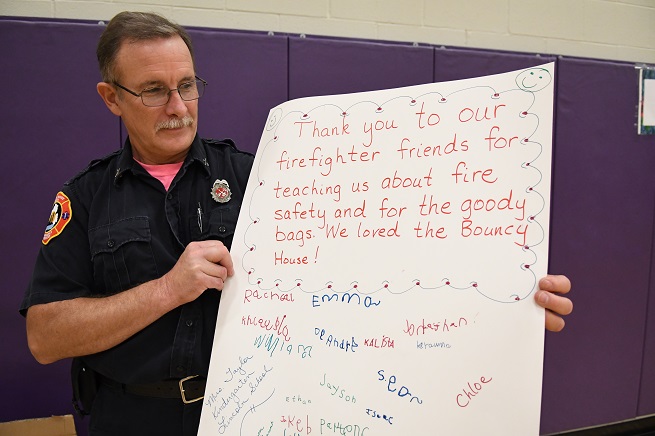 Thank you to our
firefighter friends for
teaching us about fire
safety and for the goody
bags. We loved the Bouncy
House!
Rachael Emma
Khleesia DeAndre Kalista Jonathan
William Keyawna
Mrs. Taylor
Kindergarten
Lincoln School
Jayson Sean Chloe
Ethan Isaac
Ikeb